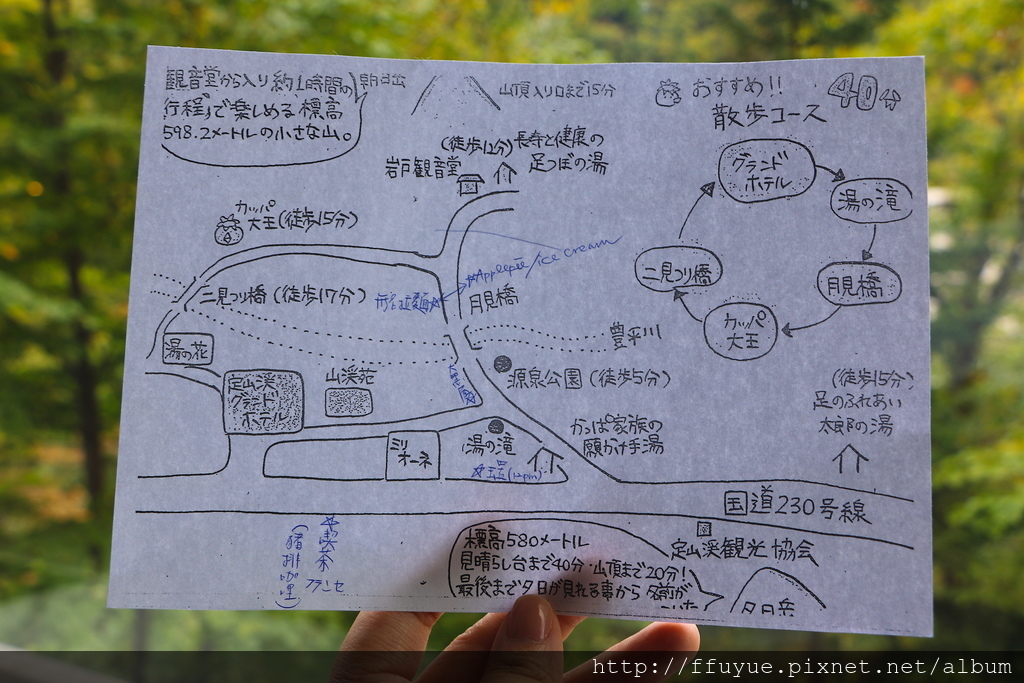 観音堂から入り約1時間の
行程で楽しめる標高
598.2メートルの小さな山。
朝日岳
山頂入り口まで15分
おすすめ!!
散歩コース
40分
グランド
ホテル
湯の滝
月見橋
カッパ
大王
二見つり橋
(徒歩12分)
岩戸観音堂
長寿と健康の
足つぼの湯
カッパ
大王(徒歩15分)
Applepie/ice cream
二見つり橋(徒歩17分)
月見橋
豊平川
湯の花
定山渓
グランド
ホテル
山渓苑
源泉公園(徒歩5分)
(徒歩15分)
足のふれあい
太郎の湯
かっぱ家族の
願かけ手湯
ミリ
オーネ
湯の滝
国道230号線
喫茶
フランセ
(豬排咖哩)
定山渓観光協会
標高580メートル
見晴らし台まで40分・山頂まで20分!
最後まで夕日が見れる事から名前が
ついた
夕日岳
http://ffuyue.pixnet.net/album